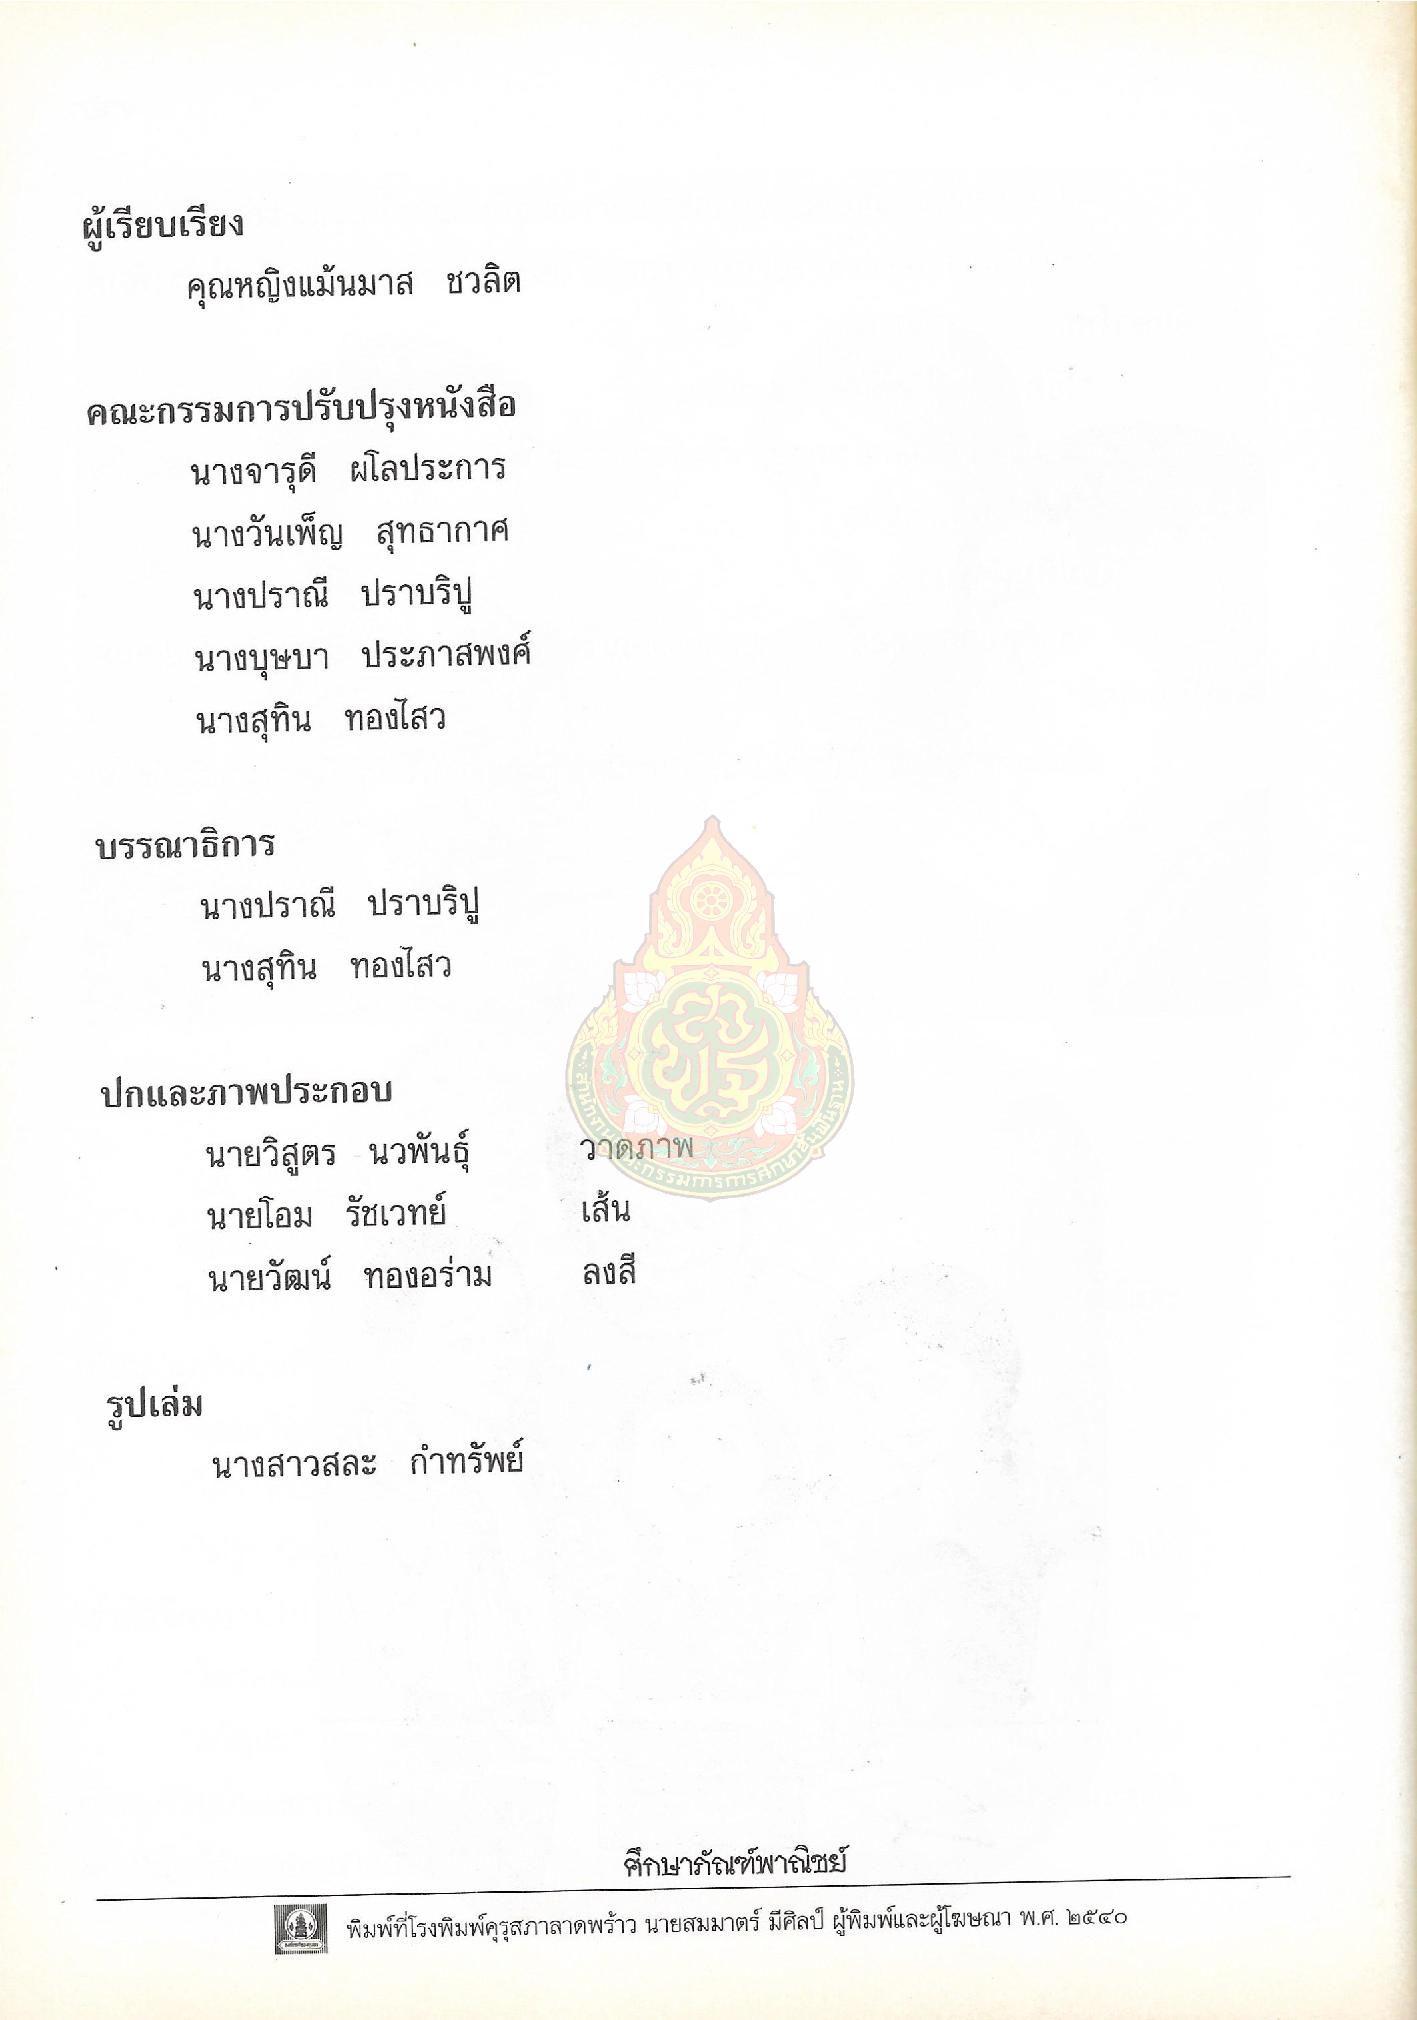 ผู้เรียบเรียง
คุณหญิงแม้นมาส ชวลิต
คณะกรรมการปรับปรุงหนังสือ
นางจารุดี ผโลประการ
นางวันเพ็ญ สุทธากาศ
นางปราณี ปราบริปู
นางบุษบา ประภาสพงศ์
นางสุทิน ทองไสว
บรรณาธิการ
นางปราณี ปราบริปู
นางสุทิน ทองไสว
สำนักงานคณะกรรมการการศึกษาขั้นพื้นฐาน
ปกและภาพประกอบ
นายวิสูตร นวพันธุ์ วาดภาพ
นายโอม รัชเวทย์ เส้น
นายวัฒน์ ทองอร่าม ลงสี
รูปเล่ม
นางสาวสละ กำทรัพย์
ศึกษาภัณฑ์พาณิชย์
พิมพ์ที่โรงพิมพ์คุรุสภาลาดพร้าว นายสมมาตร์ มีศิลป์ ผู้พิมพ์และผู้โฆษณา พ.ศ. ๒๕๔๐